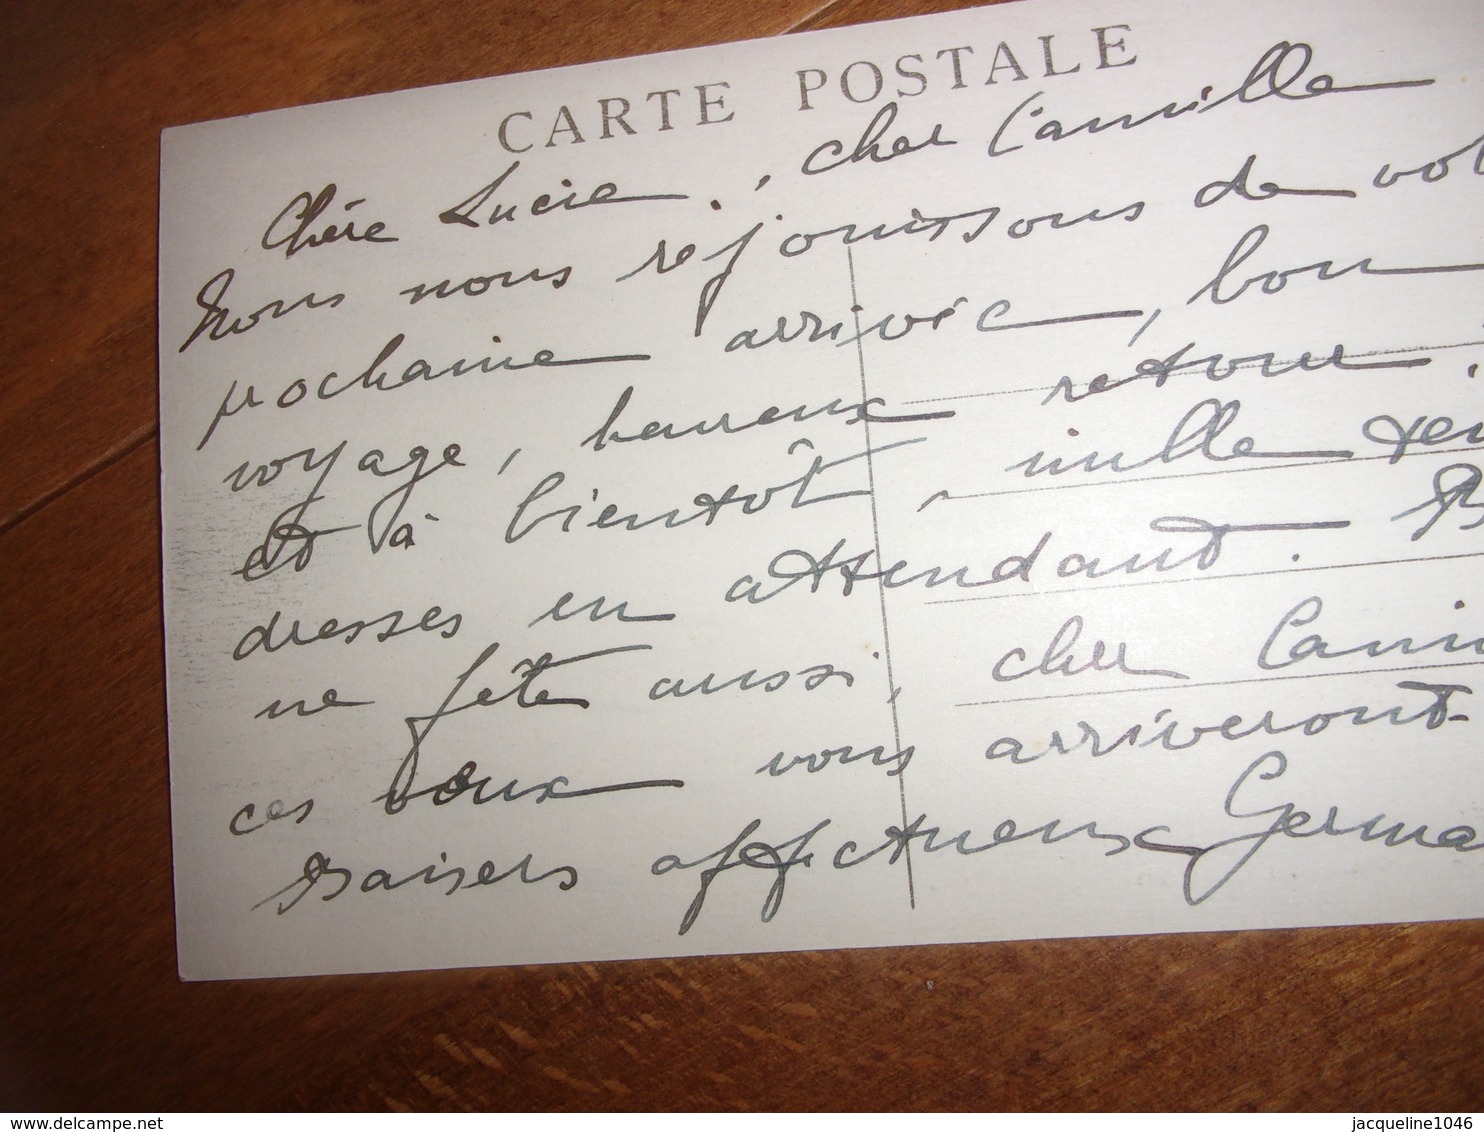 CARTE POSTALE
Chère Lucie, cher Camille
Nous nous réjouissons de vot
prochaine arrivée, bon
voyage, heureux retour.
et à bientôt, mille ten
dresses en attendant. B
ne fête aussi, cher Cami
ces vœux vous arriveront
Baisers affectueux Germa
jacqueline1046